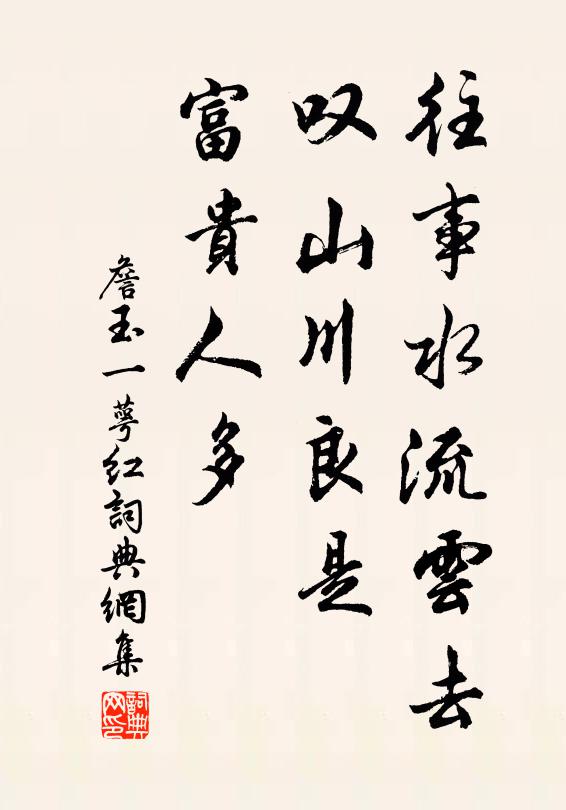 往事水流雲去
叹山川良是
富貴人多
詹玉一萼红詞典網集
詞典网印